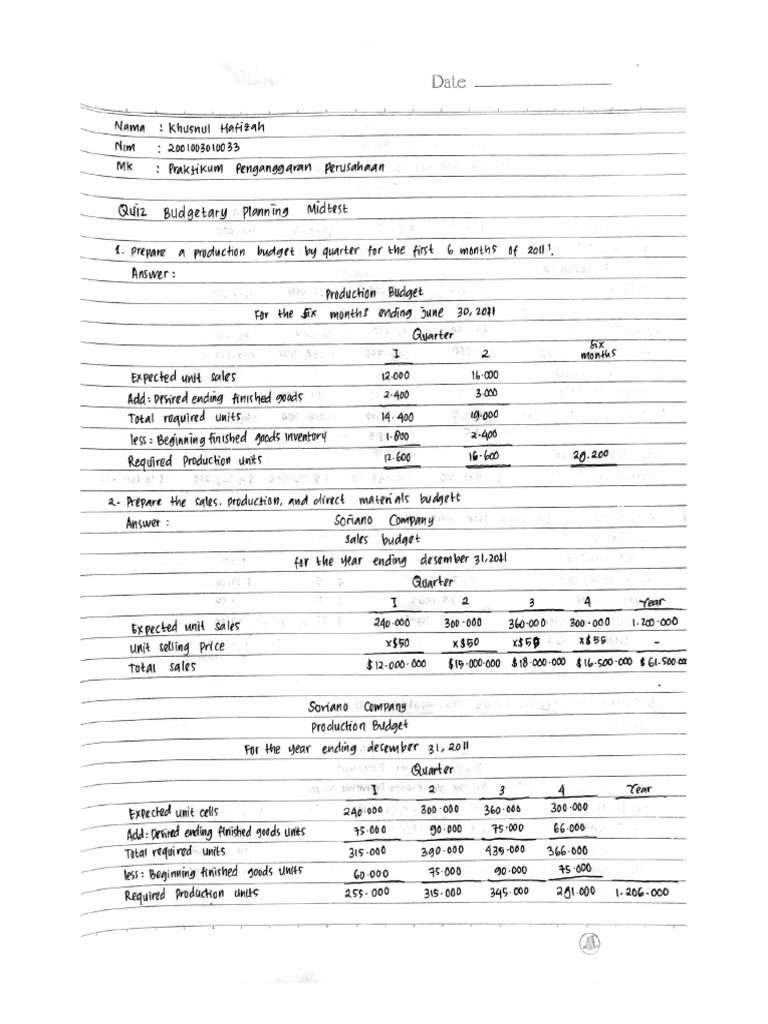 Date
Nama : Khusnul Hafizah
Nim : 2001003010033
Mk : Praktikum Penganggaran Perusahaan
Quiz Budgetary Planning Midtest
1. Prepare a production budget by quarter for the first 6 months of 2011'.
Answer :
Production Budget
For the six months ending june 30, 2011
Quarter
1 2 six months
Expected unit sales 12.000 16.000
Add: Desired ending finished goods 2.400 3.000
Total required units 14.400 19.000
less: Beginning finished goods inventory 1.800 2.400
Required Production units 12.600 16.600 29.200
2. Prepare the sales, production, and direct materials budgets
Answer : Soriano Company
sales budget
for the year ending desember 31, 2011
Quarter
1 2 3 4 Year
Expected unit sales 240.000 300.000 360.000 300.000 1.200.000
Unit selling price x$50 x$50 x$50 x$55 -
Total sales $12.000.000 $15.000.000 $18.000.000 $16.500.000 $61.500.00
Soriano Company
Production Budget
For the year ending desember 31, 2011
Quarter
1 2 3 4 Year
Expected unit cells 240.000 300.000 360.000 300.000
Add: Desired ending finished goods units 75.000 90.000 75.000 66.000
Total required units 315.000 390.000 435.000 366.000
less: Beginning finished goods units 60.000 75.000 90.000 75.000
Required Production units 255.000 315.000 345.000 291.000 1.206.000